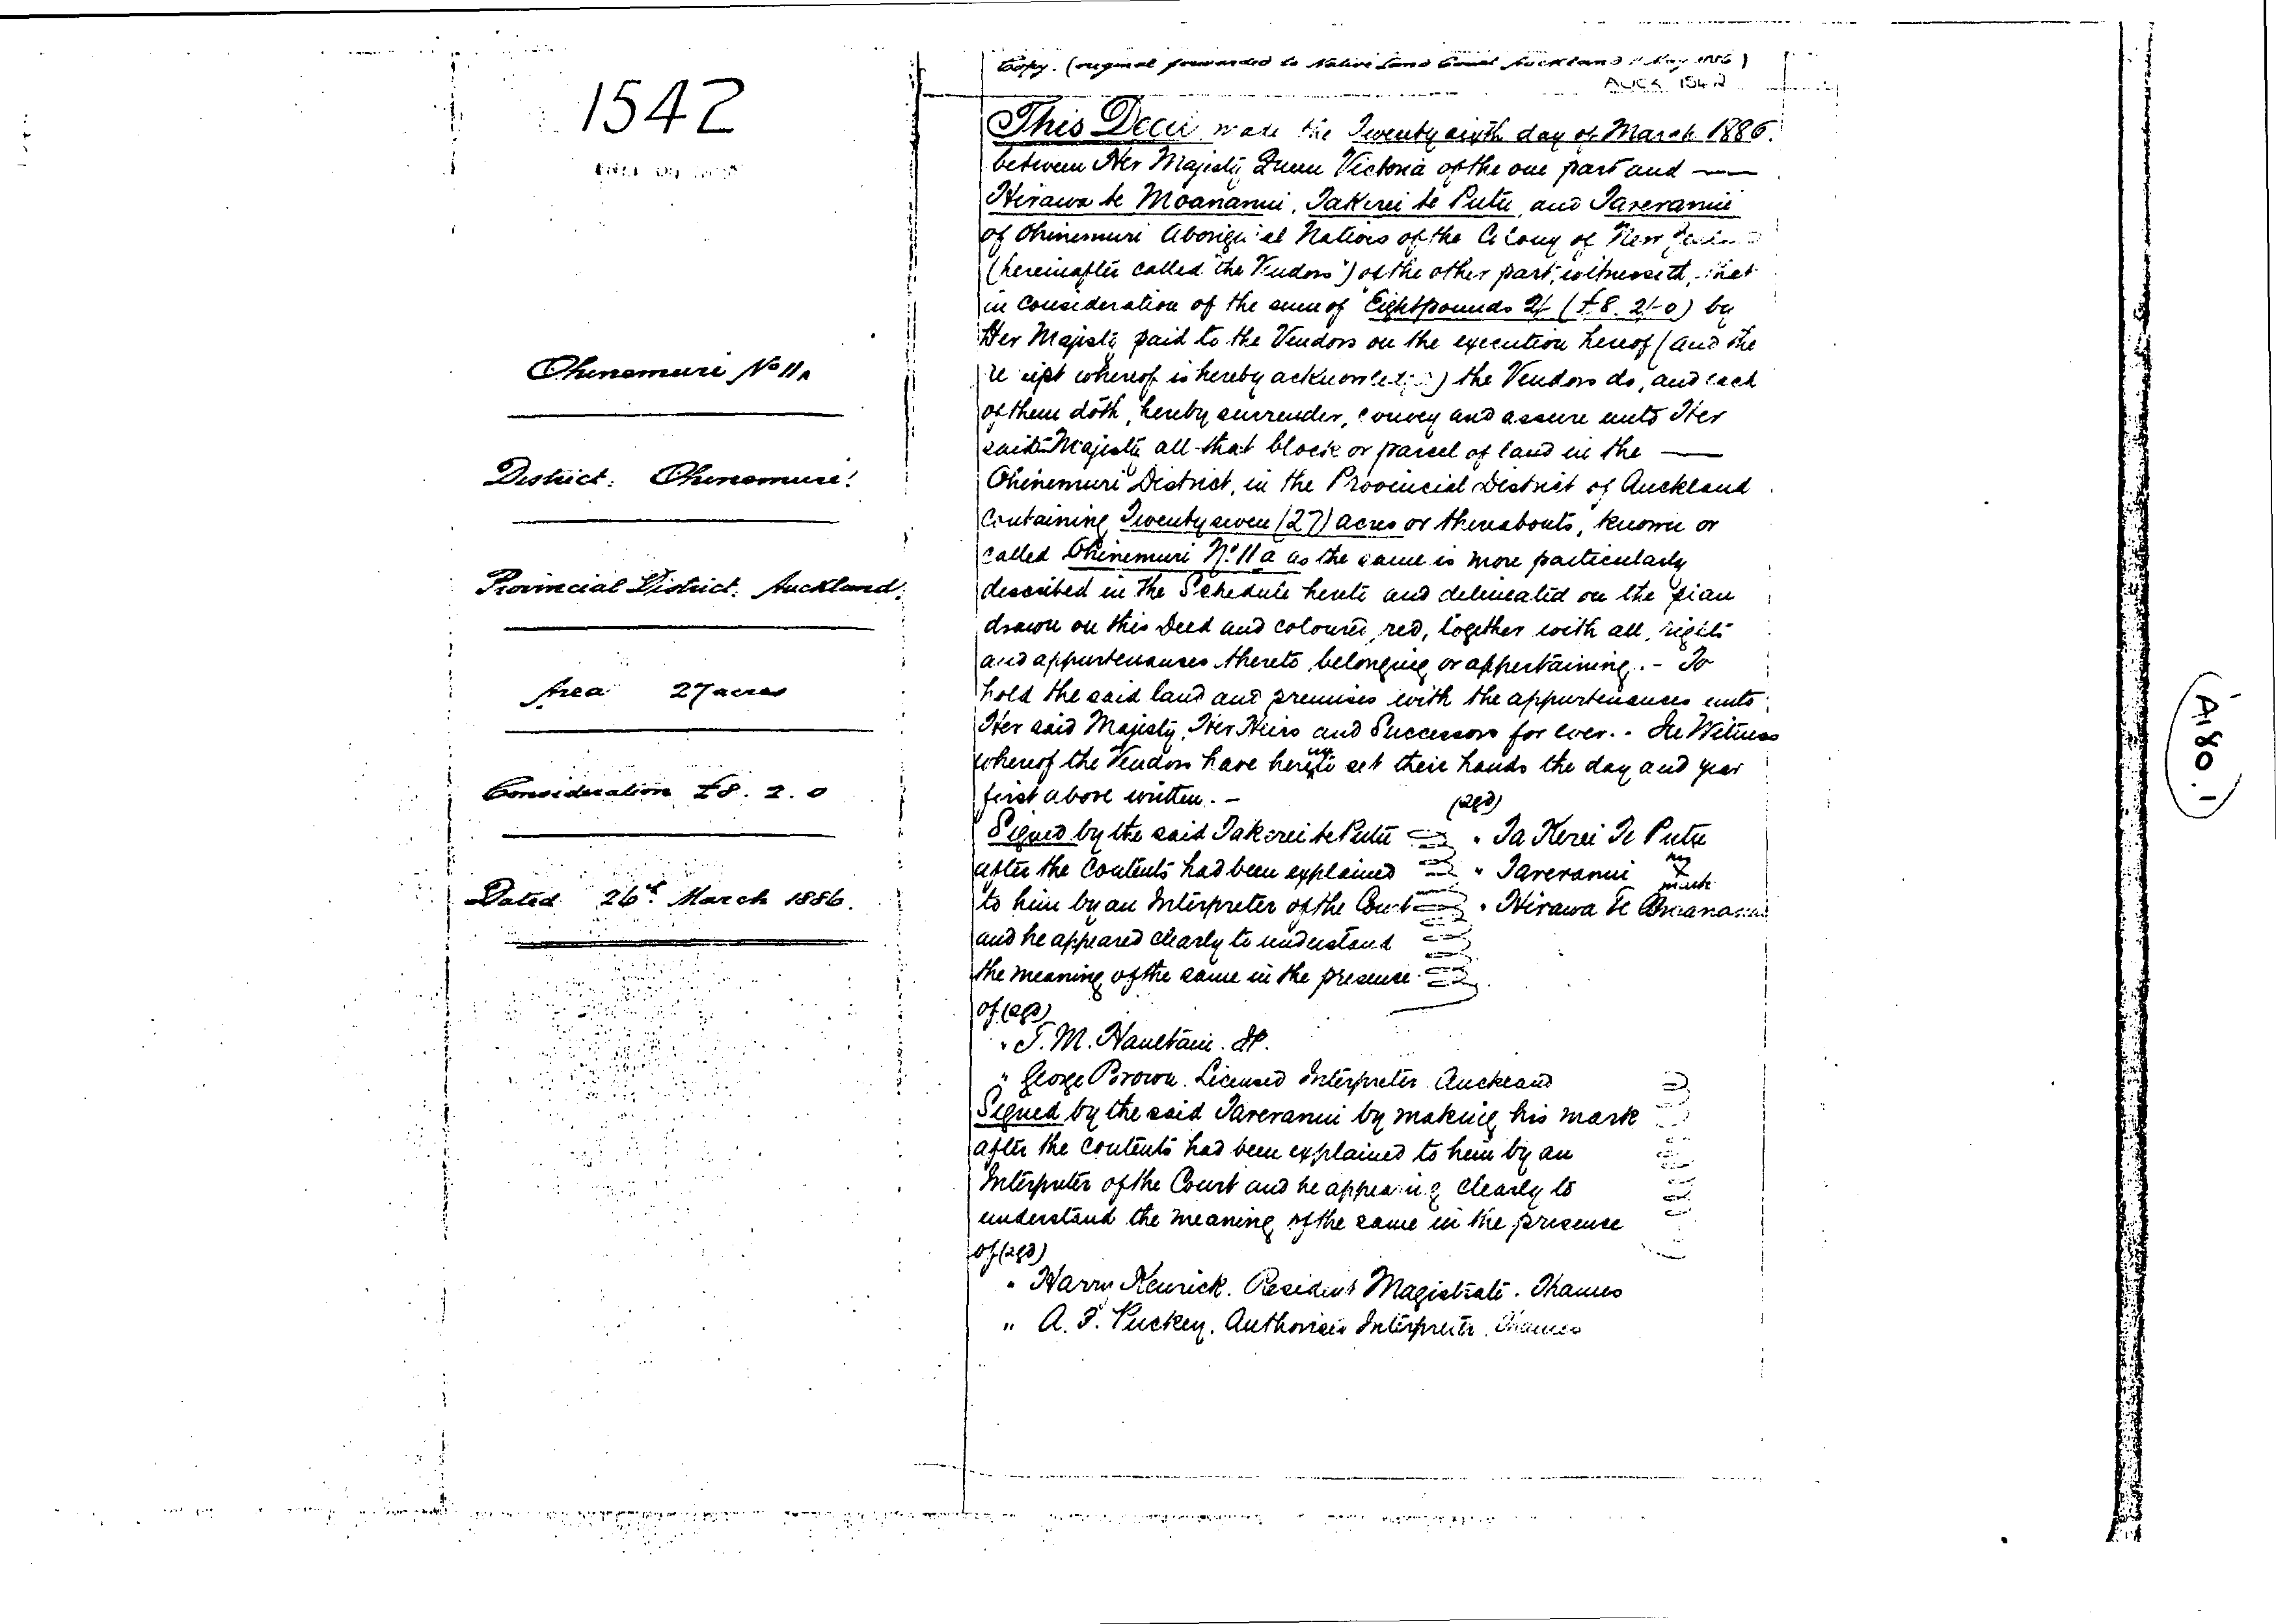 1542
Ohinemuri No 11A
District: Ohinemuri.
Provincial District: Auckland.
Area 27 acres
Consideration £8. 2. 0
Dated 26th March 1886.
Copy. (original forwarded to Native Land Court Auckland May 1886)
AUCK 1542
This Deed made the Twenty sixth day of March 1886.
between Her Majesty Queen Victoria of the one part and
Hirawa te Moananui, Takerei te Putu, and Tareranui
of Ohinemuri Aboriginal Natives of the Colony of New Zealand
(hereinafter called "the Vendors") of the other part, witnesseth, that
in consideration of the sum of Eight pounds 2/- (£8. 2/-0) by
Her Majesty paid to the Vendors on the execution hereof (and the
receipt whereof is hereby acknowledged) the Vendors do, and each
of them doth, hereby surrender, convey and assure unto Her
said Majesty all that block or parcel of land in the
Ohinemuri District, in the Provincial District of Auckland
containing Twenty seven (27) acres or thereabouts, known or
called Ohinemuri No. 11a as the same is more particularly
described in the Schedule hereto and delineated on the plan
drawn on this Deed and coloured red, together with all rights
and appurtenances thereto belonging or appertaining. - To
hold the said land and premises with the appurtenances unto
Her said Majesty, Her Heirs and Successors for ever. - In Witness
whereof the Vendors have hereunto set their hands the day and year
first above written. -
(sgd)
Signed by the said Takerei te Putu " Ta Kerei Te Putu
after the contents had been explained " Tareranui his x mark
to him by an Interpreter of the Court " Hirawa Te Moananui
and he appeared clearly to understand
the meaning of the same in the presence
of (sgd)
" T. M. Haultain. JP.
" George Brown. Licensed Interpreter Auckland
Signed by the said Tareranui by making his mark
after the contents had been explained to him by an
Interpreter of the Court and he appearing clearly to
understand the meaning of the same in the presence
of (sgd)
" Harry Kenrick. Resident Magistrate. Thames
" A. J. Puckey. Authorised Interpreter. Thames
A. 80. 1